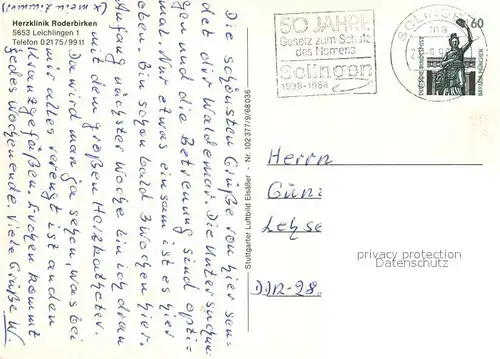 Herzklinik Roderbirken
5653 Leichlingen 1
Telefon 02175/9911
(x mein Zimmer)
Die schönsten Grüße von hier sen-
det dir Waldemar. Die Untersuchun-
gen und die Betreuung sind opti-
mal. Nur etwas einsam ist es hier
oben. Bin schon bald 3 Wochen hier.
Anfang nächster Woche bin ich dran
mit dem großen Herzkatheter.
Da wird man ja sehen, was bei
mir alles verengt ist an den
Kranzgefäßen. Evchen kommt
jedes Wochenende. Viele Grüße W.
Stuttgarter Luftbild Elsäßer - Nr. 102377/9/68036
50 JAHRE
Gesetz zum Schutz
des Namens
Solingen
1938-1988
SOLINGEN
ma
60
DEUTSCHE BUNDESPOST
BAVARIA MÜNCHEN
Herrn
Günt
Lehse
privacy protection
Datenschutz
DDR-28.